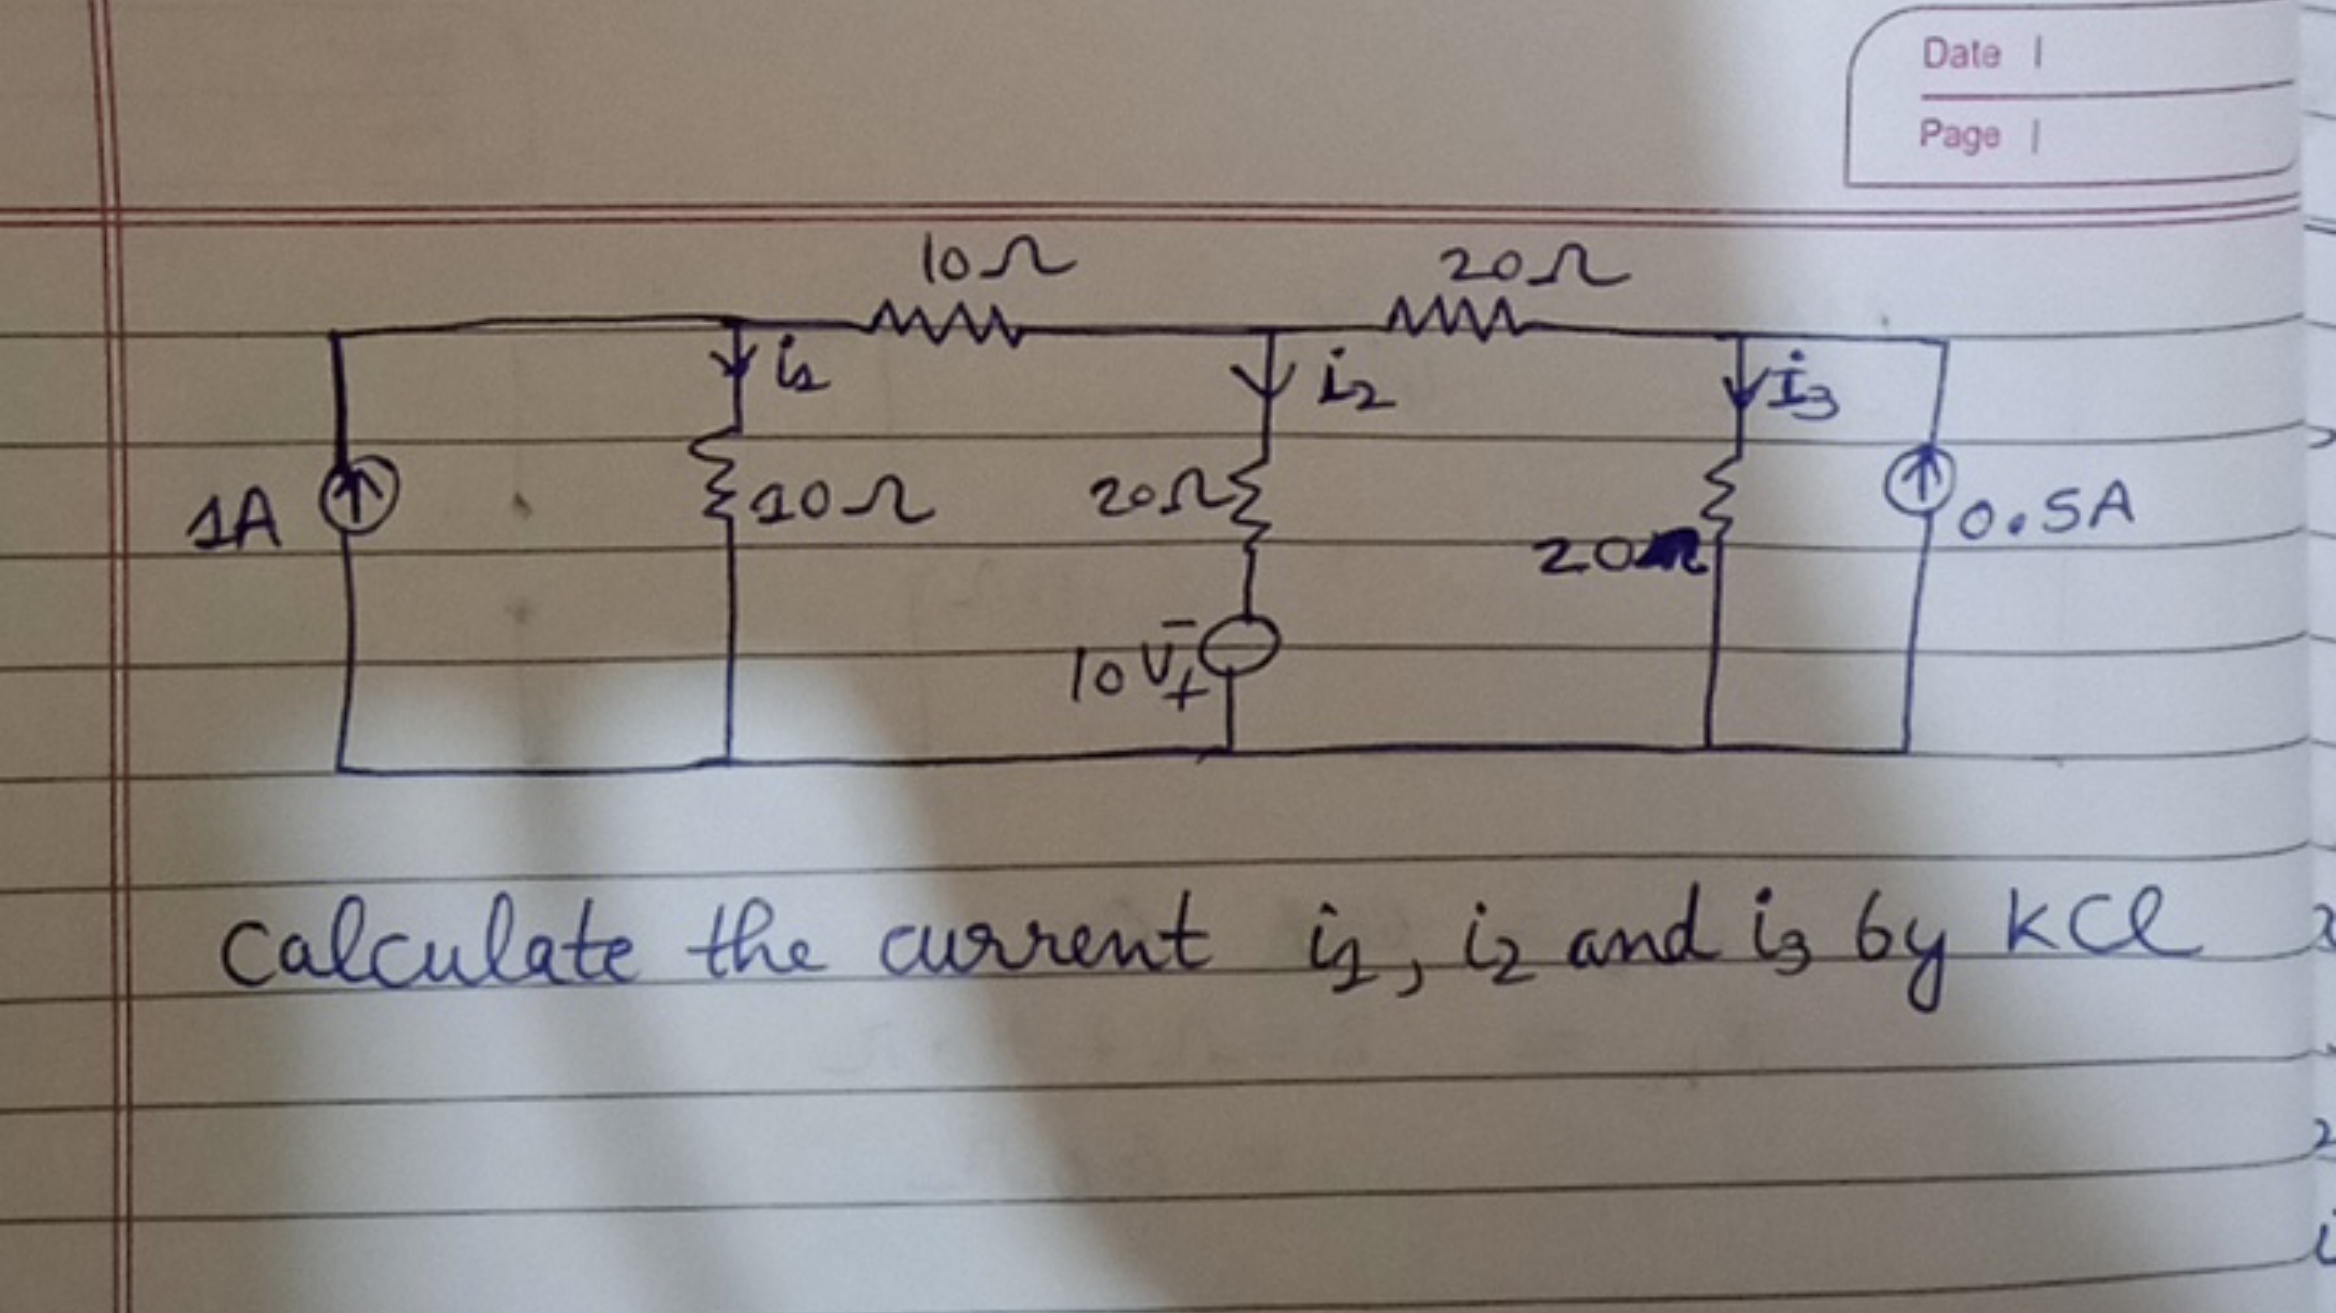 Date
Page
10Ω 20Ω
i1 i2 I3
1A 10Ω 20Ω 20Ω 0.5A
10V - +
Calculate the current i1, i2 and i3 by KCl